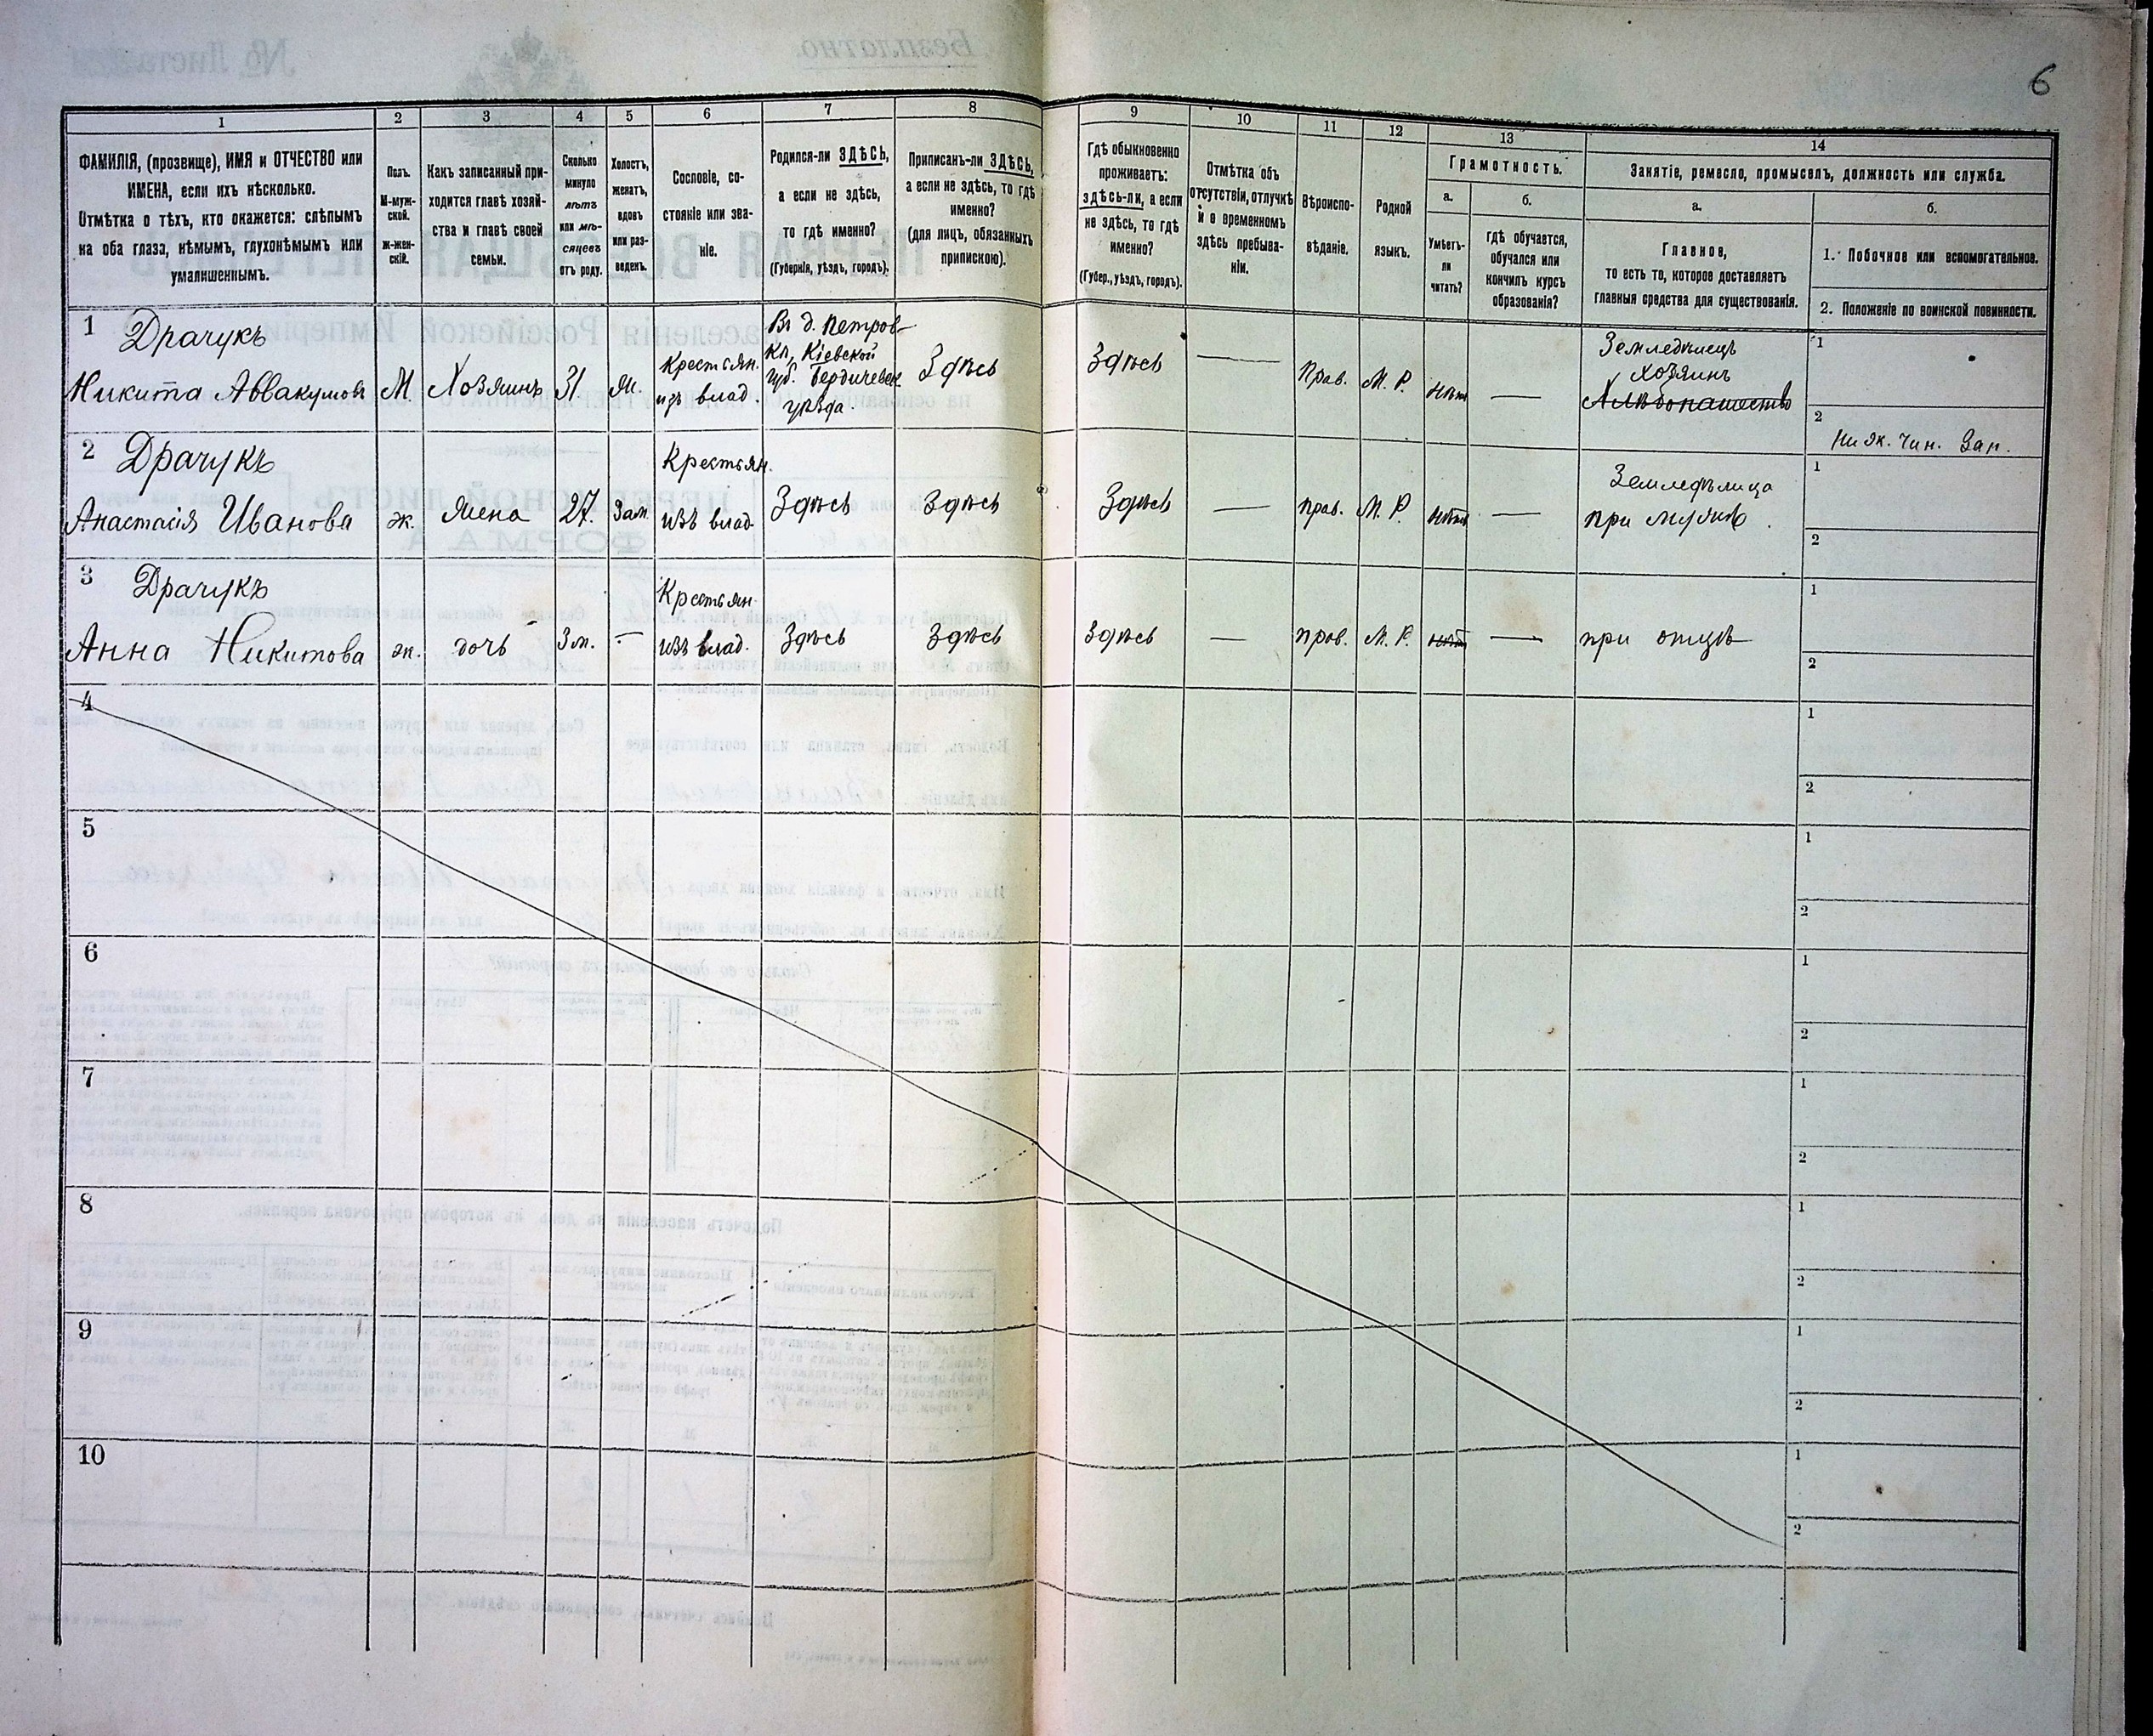 6
1
2
3
4
5
6
7
8
9
10
11
12
13
14
ФАМИЛІЯ, (прозвище), ИМЯ и ОТЧЕСТВО или
ИМЕНА, если ихъ нѣсколько.
Отмѣтка о тѣхъ, кто окажется: слѣпымъ
на оба глаза, нѣмымъ, глухонѣмымъ или
умалишеннымъ.
Полъ.
М-муж-
ской.
Ж-жен-
скій.
Какъ записанный при-
ходится главѣ хозяй-
ства и главѣ своей
семьи.
Сколько
минуло
лѣтъ
или мѣ-
сяцевъ
отъ роду.
Холостъ,
женатъ,
вдовъ
или раз-
веденъ.
Сословіе, со-
стояніе или зва-
ніе.
Родился-ли ЗДѢСЬ,
а если не здѣсь,
то гдѣ именно?
(Губернія, уѣздъ, городъ).
Приписанъ-ли ЗДѢСЬ,
а если не здѣсь, то гдѣ
именно?
(для лицъ, обязанныхъ
припискою).
Гдѣ обыкновенно
проживаетъ:
здѣсь-ли, а если
не здѣсь, то гдѣ
именно?
(Губер., уѣздъ, городъ).
Отмѣтка объ
отсутствіи, отлучкѣ
и о временномъ
здѣсь пребыва-
ніи.
Вѣроиспо-
вѣданіе.
Родной
языкъ.
Грамотность.
а.
Умѣетъ-
ли
читать?
б.
гдѣ обучается,
обучался или
кончилъ курсъ
образованія?
Занятіе, ремесло, промыселъ, должность или служба.
а.
Главное,
то есть то, которое доставляетъ
главныя средства для существованія.
б.
1. Побочное или вспомогательное.
2. Положеніе по воинской повинности.
1 Драчукъ
Никита Аввакумовъ
М.
Хозяинъ
31.
Ж.
Крестьян.
изъ влад.
Въ д. Петров-
Кіевской
губ. Бердичевск.
уѣзда.
Здѣсь
Здѣсь
—
Прав.
М. Р.
Нѣтъ
—
Земледѣлецъ
хозяинъ
Хлѣбопашество
1
2
Чин. Зап.
2 Драчукъ
Анастасія Иванова
ж.
Жена
27.
Зам
Крестьян.
изъ влад.
Здѣсь
Здѣсь
Здѣсь
—
прав.
М. Р.
нѣтъ
—
Земледѣлица
при мужѣ.
1
2
3 Драчукъ
Анна Никитова
ж.
дочь
3 м.
—
Крестьян.
изъ влад.
Здѣсь
Здѣсь
Здѣсь
—
прав.
М. Р.
нѣтъ
—
при отцѣ
1
2
4
1
2
5
1
2
6
1
2
7
1
2
8
1
2
9
1
2
10
1
2